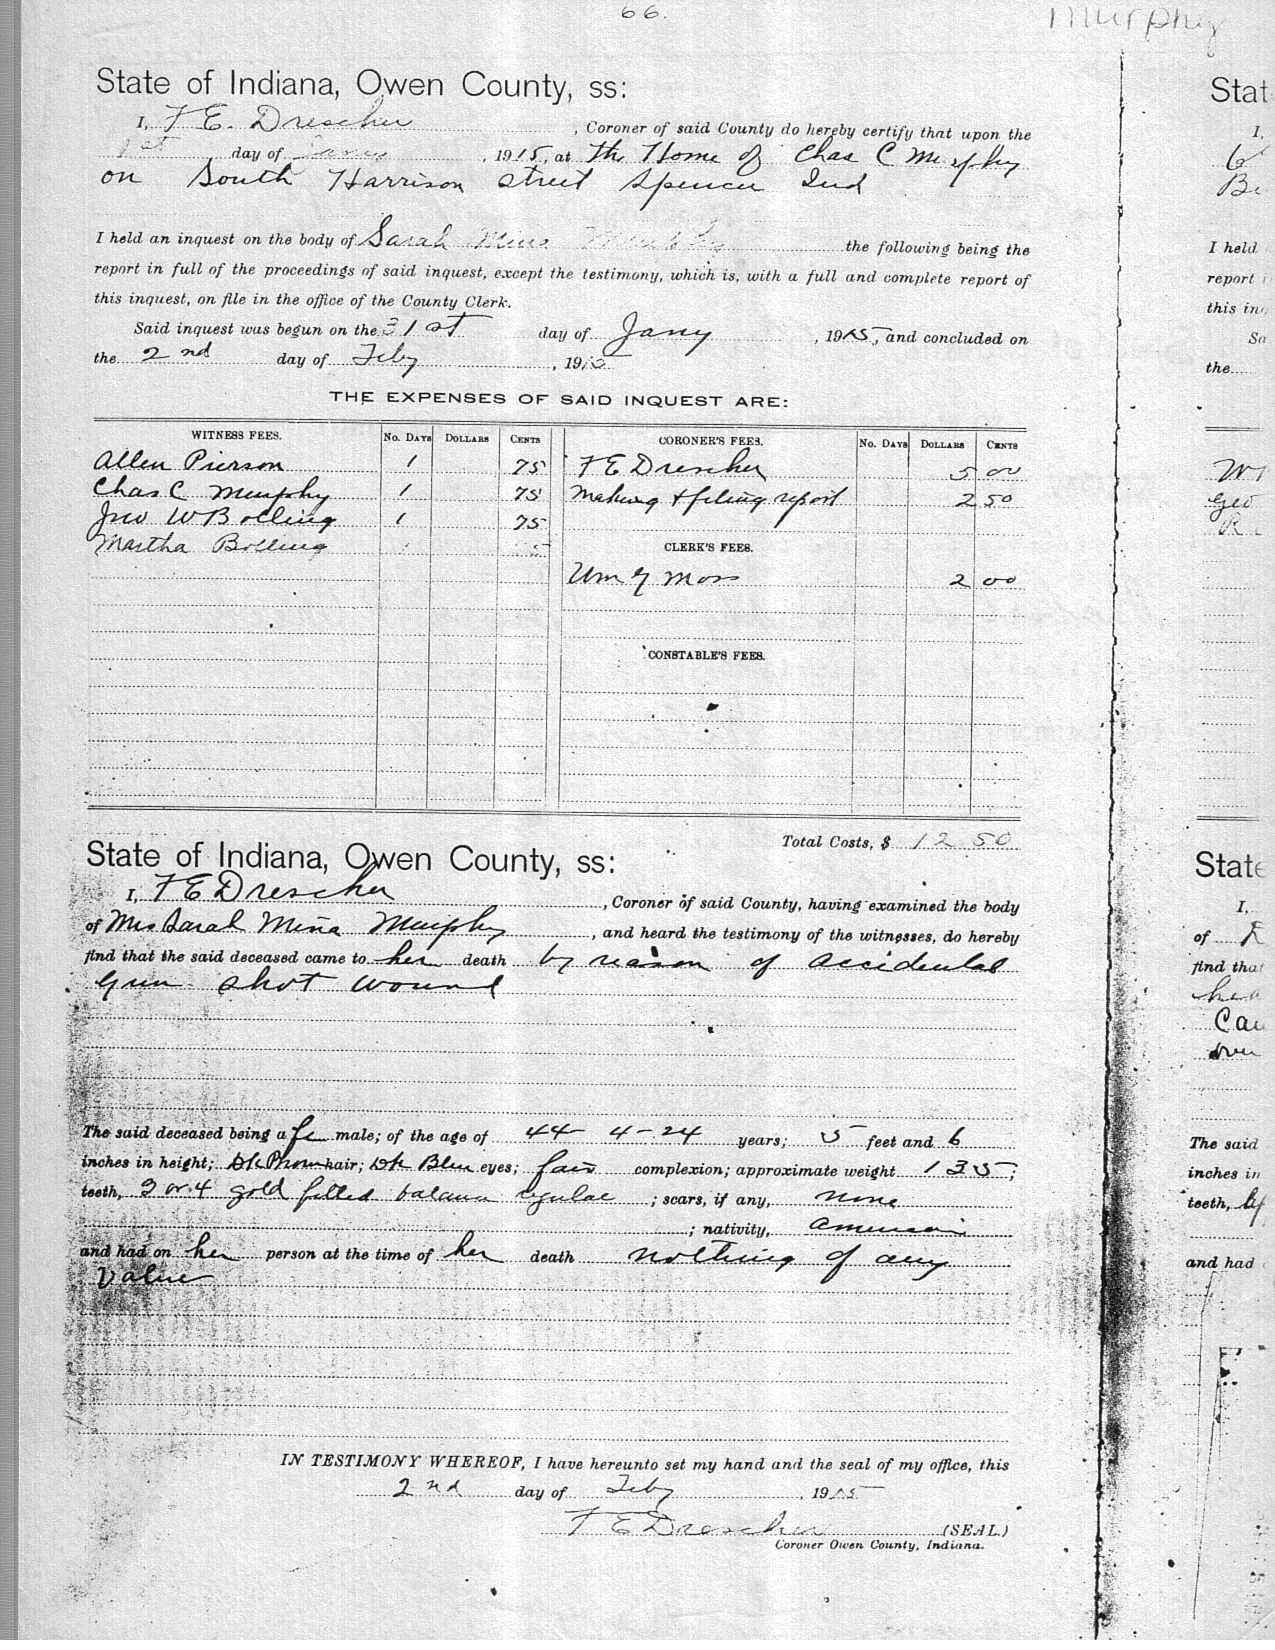 66.
Murphy
State of Indiana, Owen County, ss:
I, F E. Drescher, Coroner of said County do hereby certify that upon the
1st day of Jany, 1915, at the Home of Chas C Murphy
on South Harrison street Spencer Ind
I held an inquest on the body of Sarah Mina Murphy the following being the
report in full of the proceedings of said inquest, except the testimony, which is, with a full and complete report of
this inquest, on file in the office of the County Clerk.
Said inquest was begun on the 31st day of Jany, 1915, and concluded on
the 2nd day of Feby, 1915
THE EXPENSES OF SAID INQUEST ARE:
WITNESS FEES. No. DAYS DOLLARS CENTS CORONER'S FEES. No. DAYS DOLLARS CENTS
Allen Pierson 1 75 F E Drescher 5 00
Chas C Murphy 1 75 Making & filing report 2 50
Jno W Bolling 1 75
Martha Bolling CLERK'S FEES.
Wm G Moss 2 00
CONSTABLE'S FEES.
Total Costs, $ 12 50
State of Indiana, Owen County, ss:
I, F E Drescher, Coroner of said County, having examined the body
of Mrs Sarah Mina Murphy, and heard the testimony of the witnesses, do hereby
find that the said deceased came to her death by reason of accidental
Gun shot wound
The said deceased being a fe male; of the age of 44-4-24 years; 5 feet and 6
inches in height; Dk Brown hair; Dk Blue eyes; fair complexion; approximate weight 135;
teeth, 3 or 4 gold filled balance regular; scars, if any, none
; nativity, American
and had on her person at the time of her death nothing of any
Value
IN TESTIMONY WHEREOF, I have hereunto set my hand and the seal of my office, this
2nd day of Feby, 1915
F E Drescher (SEAL)
Coroner Owen County, Indiana.
Stat
I,
I held
report
this in
Sa
the
State
I,
of
find that
The said
inches in
teeth,
and had